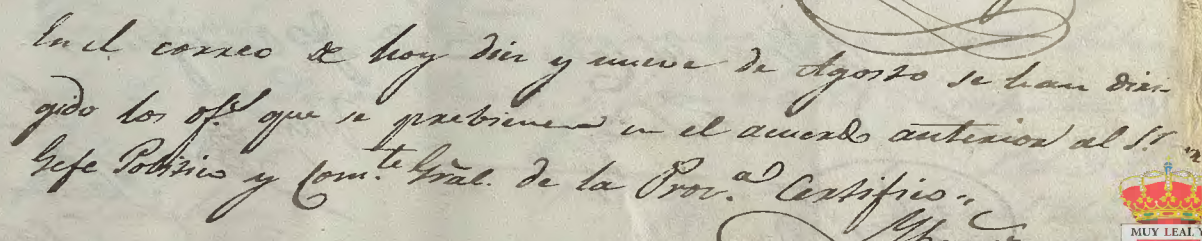 En el correo de hoy diez y nueve de Agosto se han diri-
gido los of.s que se prebienen en el acuerdo anterior al S.r
Gefe Politico y Com.te Gral. de la Prov.a Certifico..
MUY LEAL